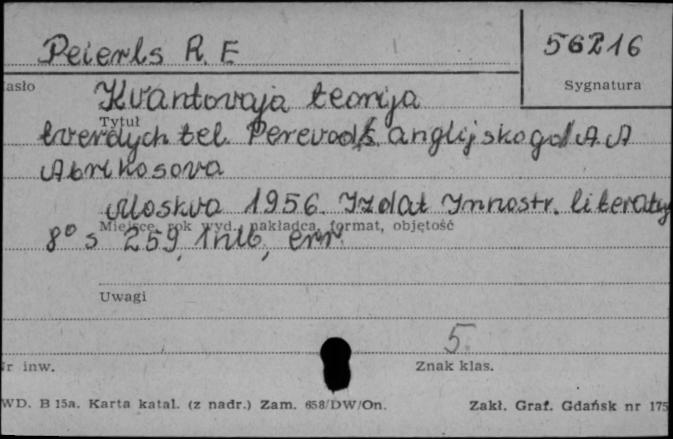 Peierls R. E
56216
asło
Sygnatura
Kvantovaja teorija
Tytuł
tverdych tel. Perevod s anglijskogo A. A
Abrikosova
Moskva 1956. Izdat Innostr. literaty
Miejsce, rok wyd., nakładca, format, objętość
8° s 259, 1nlb, err.
Uwagi
5.
r inw.
Znak klas.
WD. B 15a. Karta katal. (z nadr.) Zam. 658/DW/On.
Zakł. Graf. Gdańsk nr 175